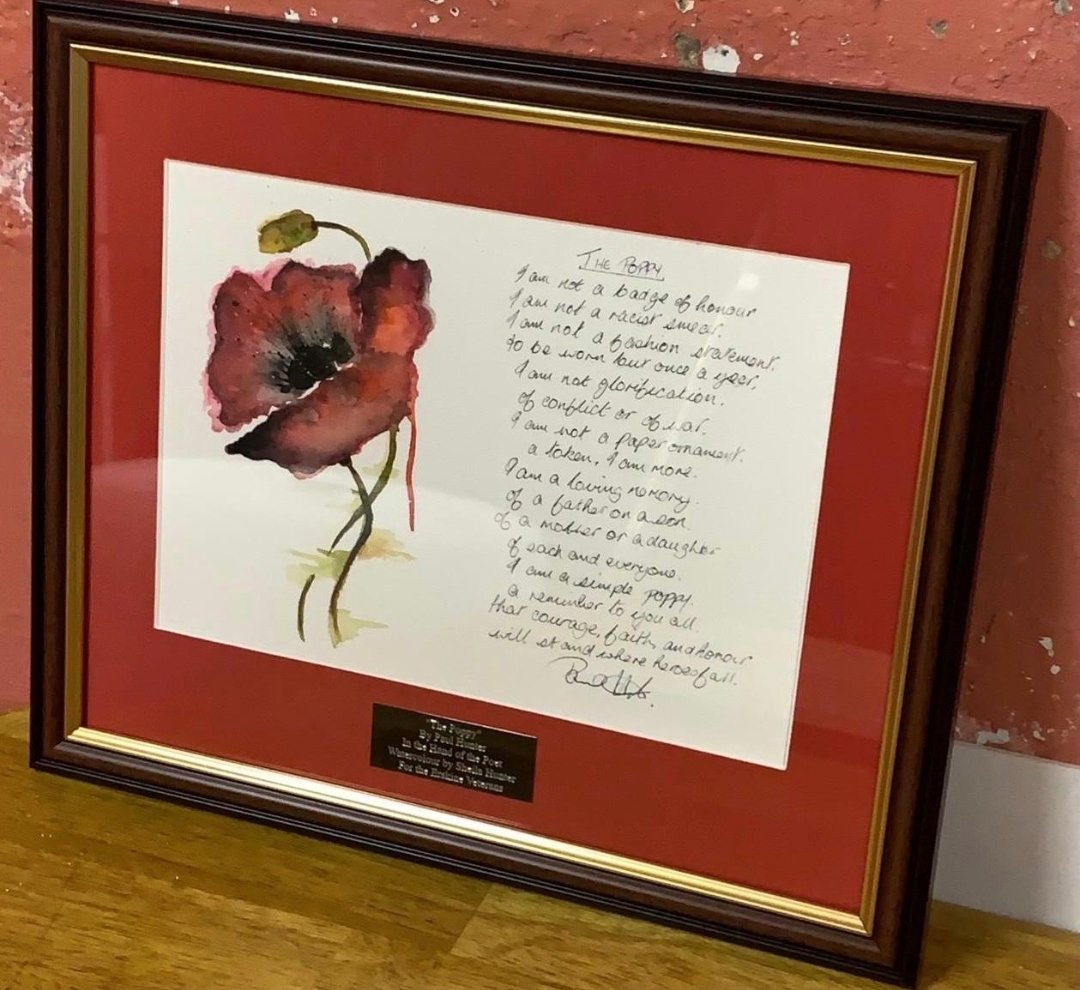 THE POPPY
I am not a badge of honour
I am not a racist smear.
I am not a fashion statement.
to be worn but once a year,
I am not glorification.
of conflict or of war.
I am not a paper ornament.
a token, I am more.
I am a loving memory.
of a father or a son.
of a mother or a daughter
of each and everyone.
I am a simple poppy.
a reminder to you all.
that courage, faith, and honour
will stand where heroes fall.
"The Poppy"
By Paul Hunter
In the Hand of the Poet
Watercolour by Sheila Hunter
For the Erskine Veterans